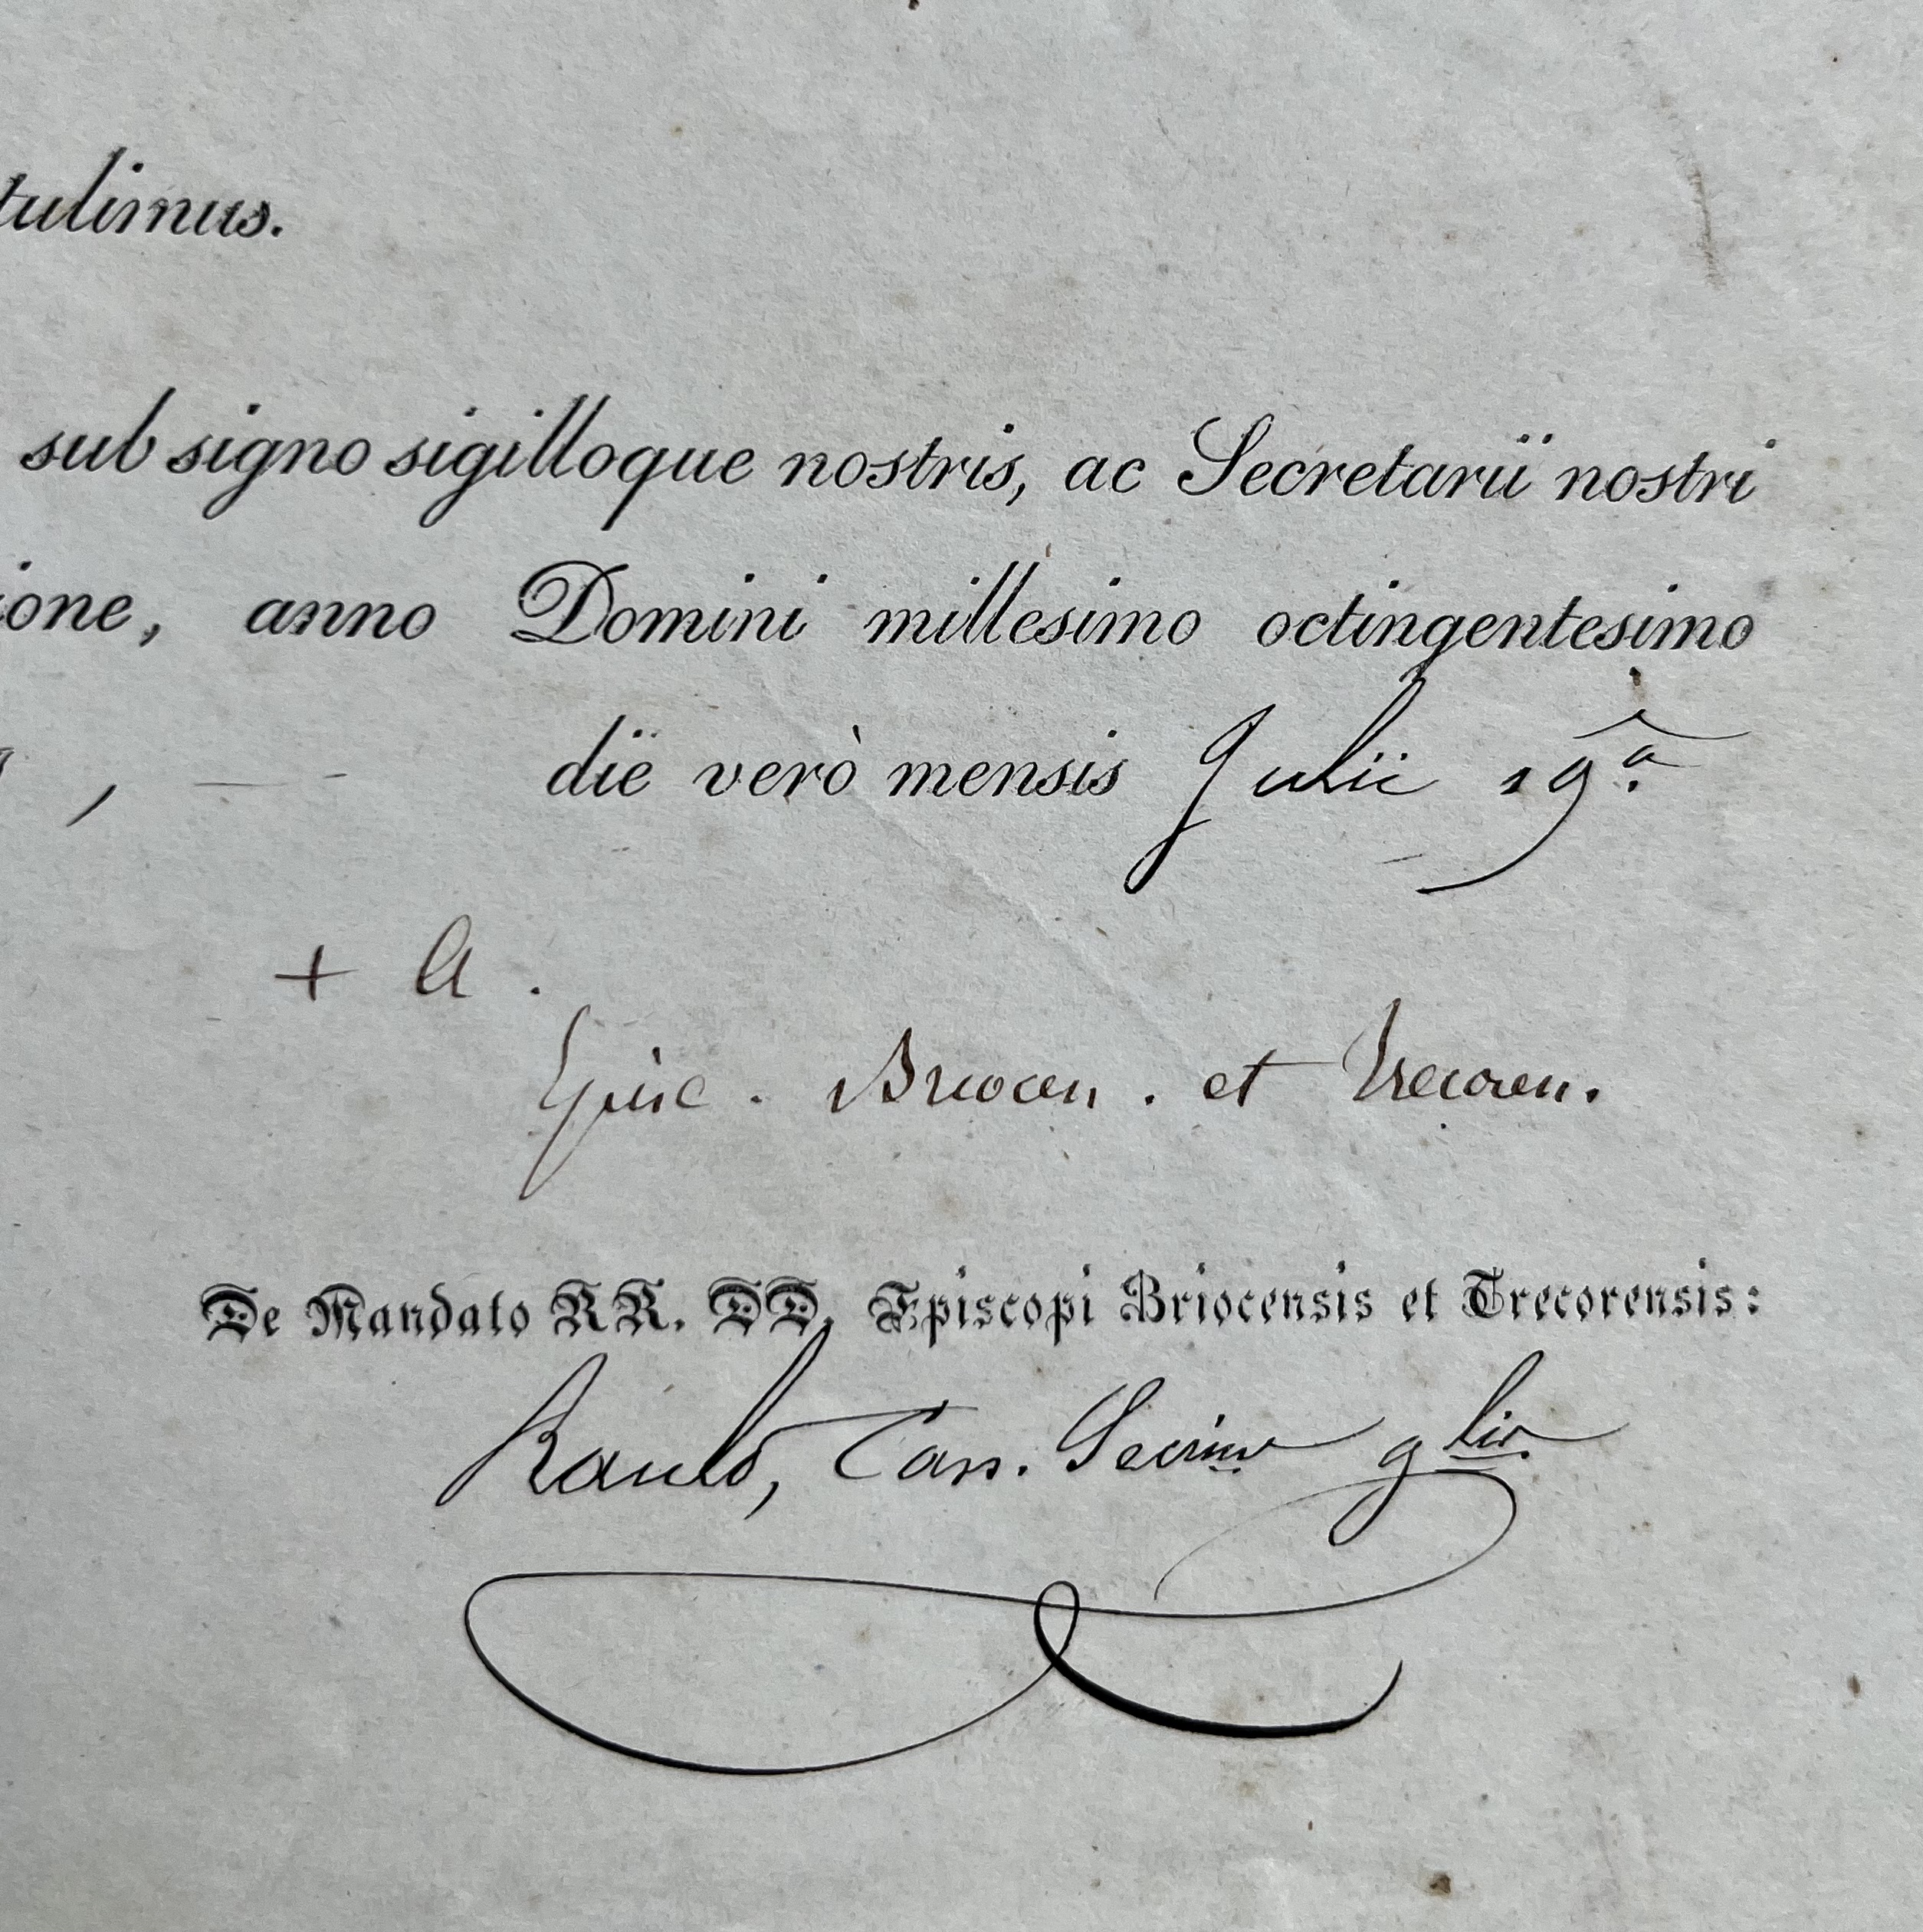 tulimus.
sub signo sigilloque nostris, ac Secretarii nostri
ione, anno Domini millesimo octingentesimo
, die verò mensis Julii 19ª.
+ A.
Episc. Briocen. et Trecoren.
De Mandato RR. DD. Episcopi Briocensis et Trecorensis:
Can. glis